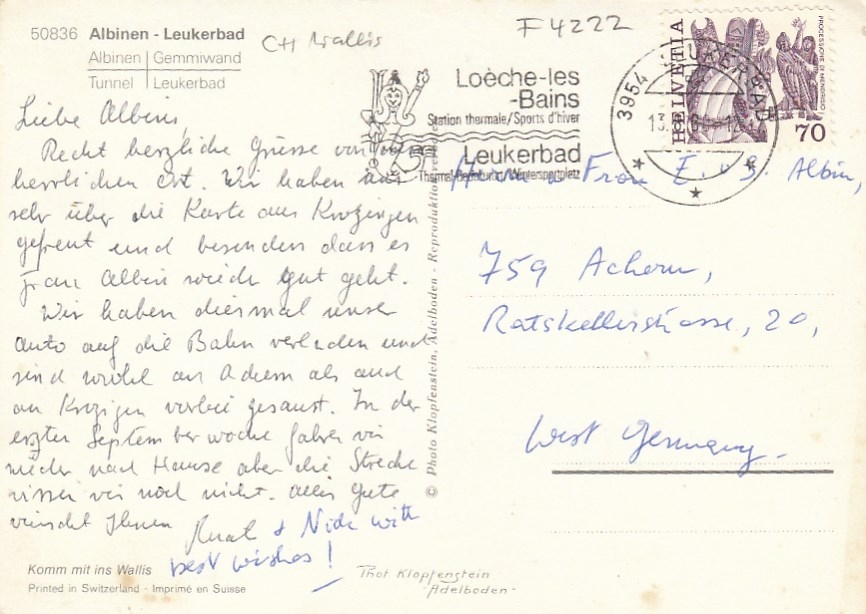 50836 Albinen - Leukerbad
Albinen | Gemmiwand
Tunnel | Leukerbad
CH Wallis
F 4222
Liebe Albins,
Recht herzliche Grüsse von
herrlichen Ort. Wir haben uns
sehr über die Karte aus Krozingen
gefreut und besonders dass es
Frau Albin wieder gut geht.
Wir haben diesmal unser
Auto auf die Bahn verladen und
sind wohl an Achern als auch
an Krozigen vorbei gesaust. In der
ersten September woche fahren wir
wieder nach Hause aber die Strecke
wissen wir noch nicht. Alles Gute
wünscht Ihnen
& with
best wishes!
Komm mit ins Wallis
Printed in Switzerland - Imprimé en Suisse
© Photo Klopfenstein, Adelboden - Reproduktion
Phot Klopfenstein
- Adelboden -
Loèche-les
-Bains
Station thermale/Sports d'hiver
Leukerbad
Thermal-Badekurort/Wintersportplatz
3954 LEUKERBAD
HELVETIA
PROCESSIONE DI MENDRISIO
70
Herrn u Frau E. u. J. Albin,
759 Achern,
Ratskellerstrasse, 20,
West Germany.